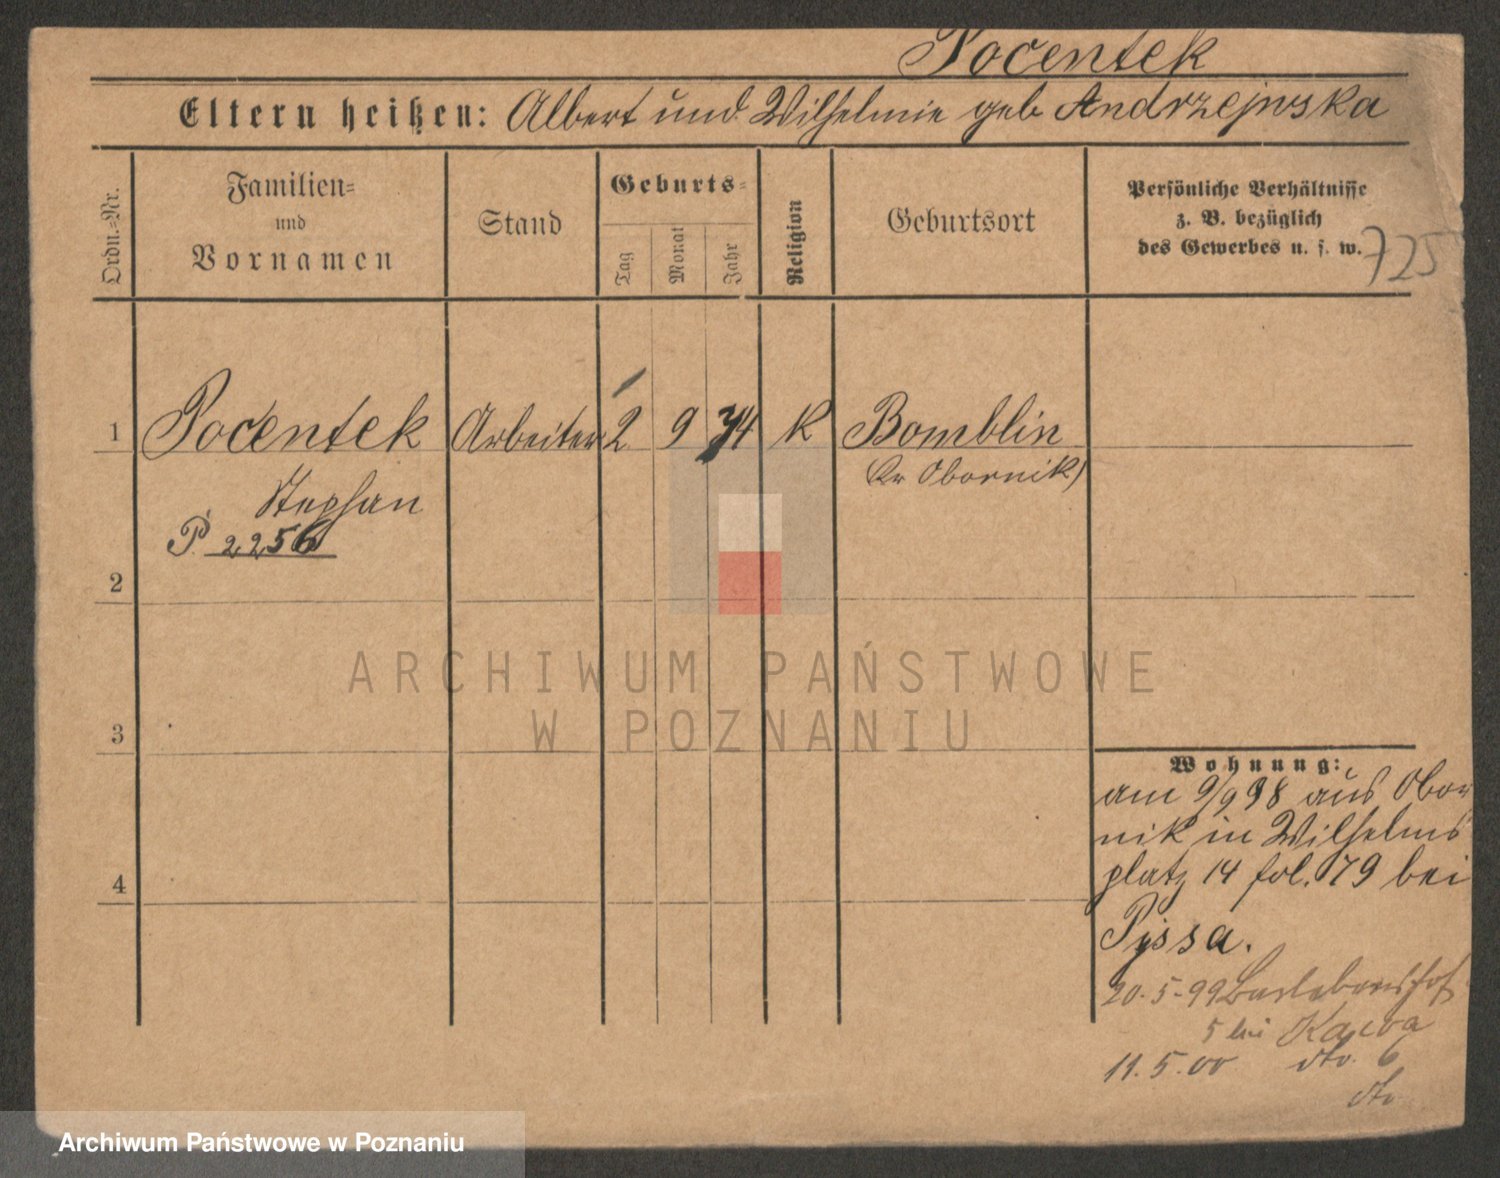 Pocentek
Eltern heißen: Albert und Wilhelmie geb Andrzejwska
Ordn.-Nr.
Familien-
und
Vornamen
Stand
Geburts-
Tag
Monat
Jahr
Religion
Geburtsort
Persönliche Verhältnisse
z. B. bezüglich
des Gewerbes u. s. w.
725
1 Pocentek Arbeiter 2 9 74 K Bomblin
(Kr Obornik)
Stephan
P. 2256
2
3
4
Wohnung:
am 9/9 98 aus Obor
nik in Wilhelms
platz 14 fol. 79 bei
Pyssa.
20.-5-99
5 bei Kacva
11.5.00 dto. 6
dto
ARCHIWUM PAŃSTWOWE
W POZNANIU
Archiwum Państwowe w Poznaniu